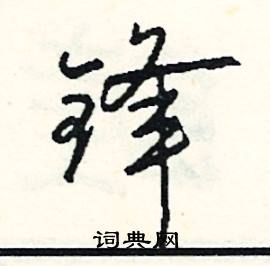 锋
词典网